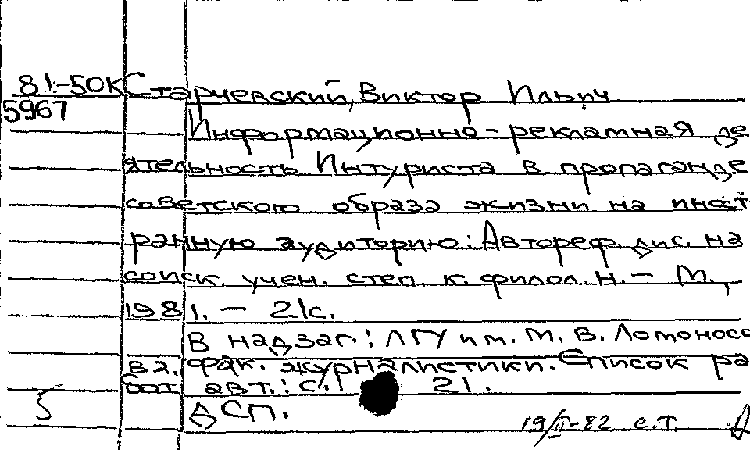 81-50К Старчевский, Виктор Ильич
5967
Информационно-рекламная де
ятельность Интуриста в пропаганде
советского образа жизни на иност
ранную аудиторию: Автореф. дис. на
соиск. учен. степ. к. филол. н. - М.,
1981. - 21с.
В надзаг.: МГУ им. М. В. Ломоносо
ва. фак. журналистики. Список ра
бот авт.: с. 21.
5 ДСП.
19/II-82 с.т.